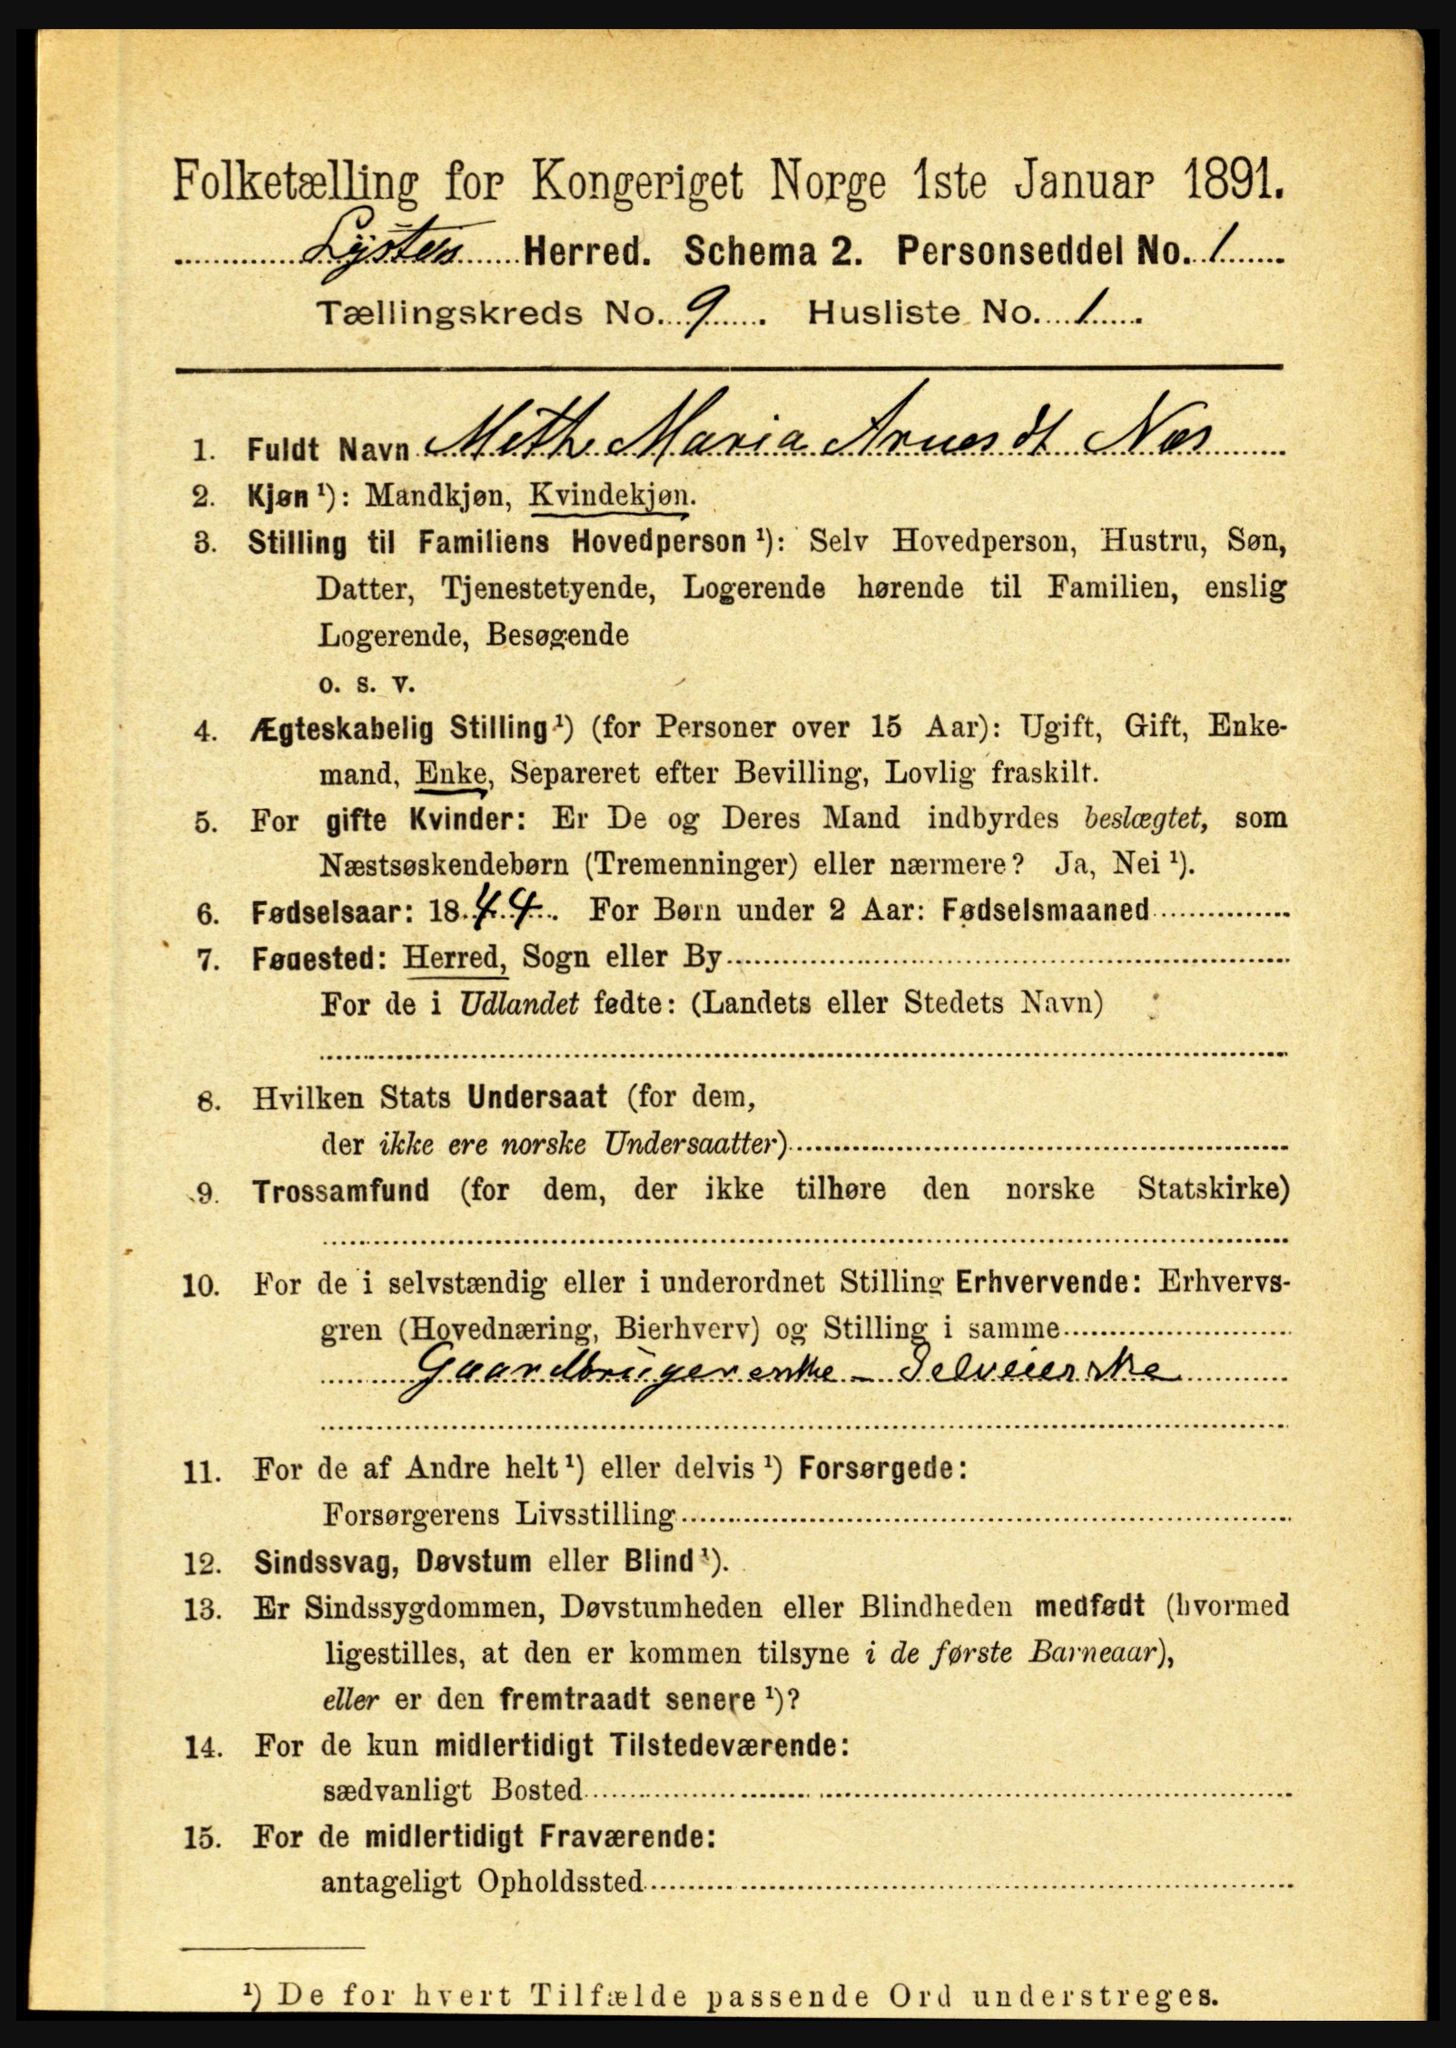 Folketælling for Kongeriget Norge 1ste Januar 1891.
Lyster Herred. Schema 2. Personseddel No. 1
Tællingskreds No. 9. Husliste No. 1.
1. Fuldt Navn Methe Maria Arnesdt Næs
2. Kjøn ¹): Mandkjøn, Kvindekjøn.
3. Stilling til Familiens Hovedperson ¹): Selv Hovedperson, Hustru, Søn,
Datter, Tjenestetyende, Logerende hørende til Familien, enslig
Logerende, Besøgende
o. s. v.
4. Ægteskabelig Stilling ¹) (for Personer over 15 Aar): Ugift, Gift, Enke-
mand, Enke, Separeret efter Bevilling, Lovlig fraskilt.
5. For gifte Kvinder: Er De og Deres Mand indbyrdes beslægtet, som
Næstsøskendebørn (Tremenninger) eller nærmere? Ja, Nei ¹).
6. Fødselsaar: 1844. For Børn under 2 Aar: Fødselsmaaned
7. Fødested: Herred, Sogn eller By
For de i Udlandet fødte: (Landets eller Stedets Navn)
8. Hvilken Stats Undersaat (for dem,
der ikke ere norske Undersaatter)
9. Trossamfund (for dem, der ikke tilhøre den norske Statskirke)
10. For de i selvstændig eller i underordnet Stilling Erhvervende: Erhvervs-
gren (Hovednæring, Bierhverv) og Stilling i samme
Gaardbrugerenke - Selveierske
11. For de af Andre helt ¹) eller delvis ¹) Forsørgede:
Forsørgerens Livsstilling
12. Sindssvag, Døvstum eller Blind ¹).
13. Er Sindssygdommen, Døvstumheden eller Blindheden medfødt (hvormed
ligestilles, at den er kommen tilsyne i de første Barneaar),
eller er den fremtraadt senere ¹)?
14. For de kun midlertidigt Tilstedeværende:
sædvanligt Bosted
15. For de midlertidigt Fraværende:
antageligt Opholdssted
¹) De for hvert Tilfælde passende Ord understreges.